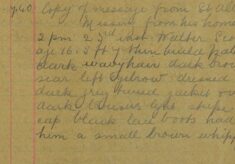 7.40 Copy of message from St Al
Missing from his home
2 pm 23rd inst. Walter
age 16. 5 ft thin build pale
dark wavy hair dark brow
scar left eyebrow dressed
dark grey tweed jacket
dark trousers light stripe
cap black lace boots had
him a small brown whipp